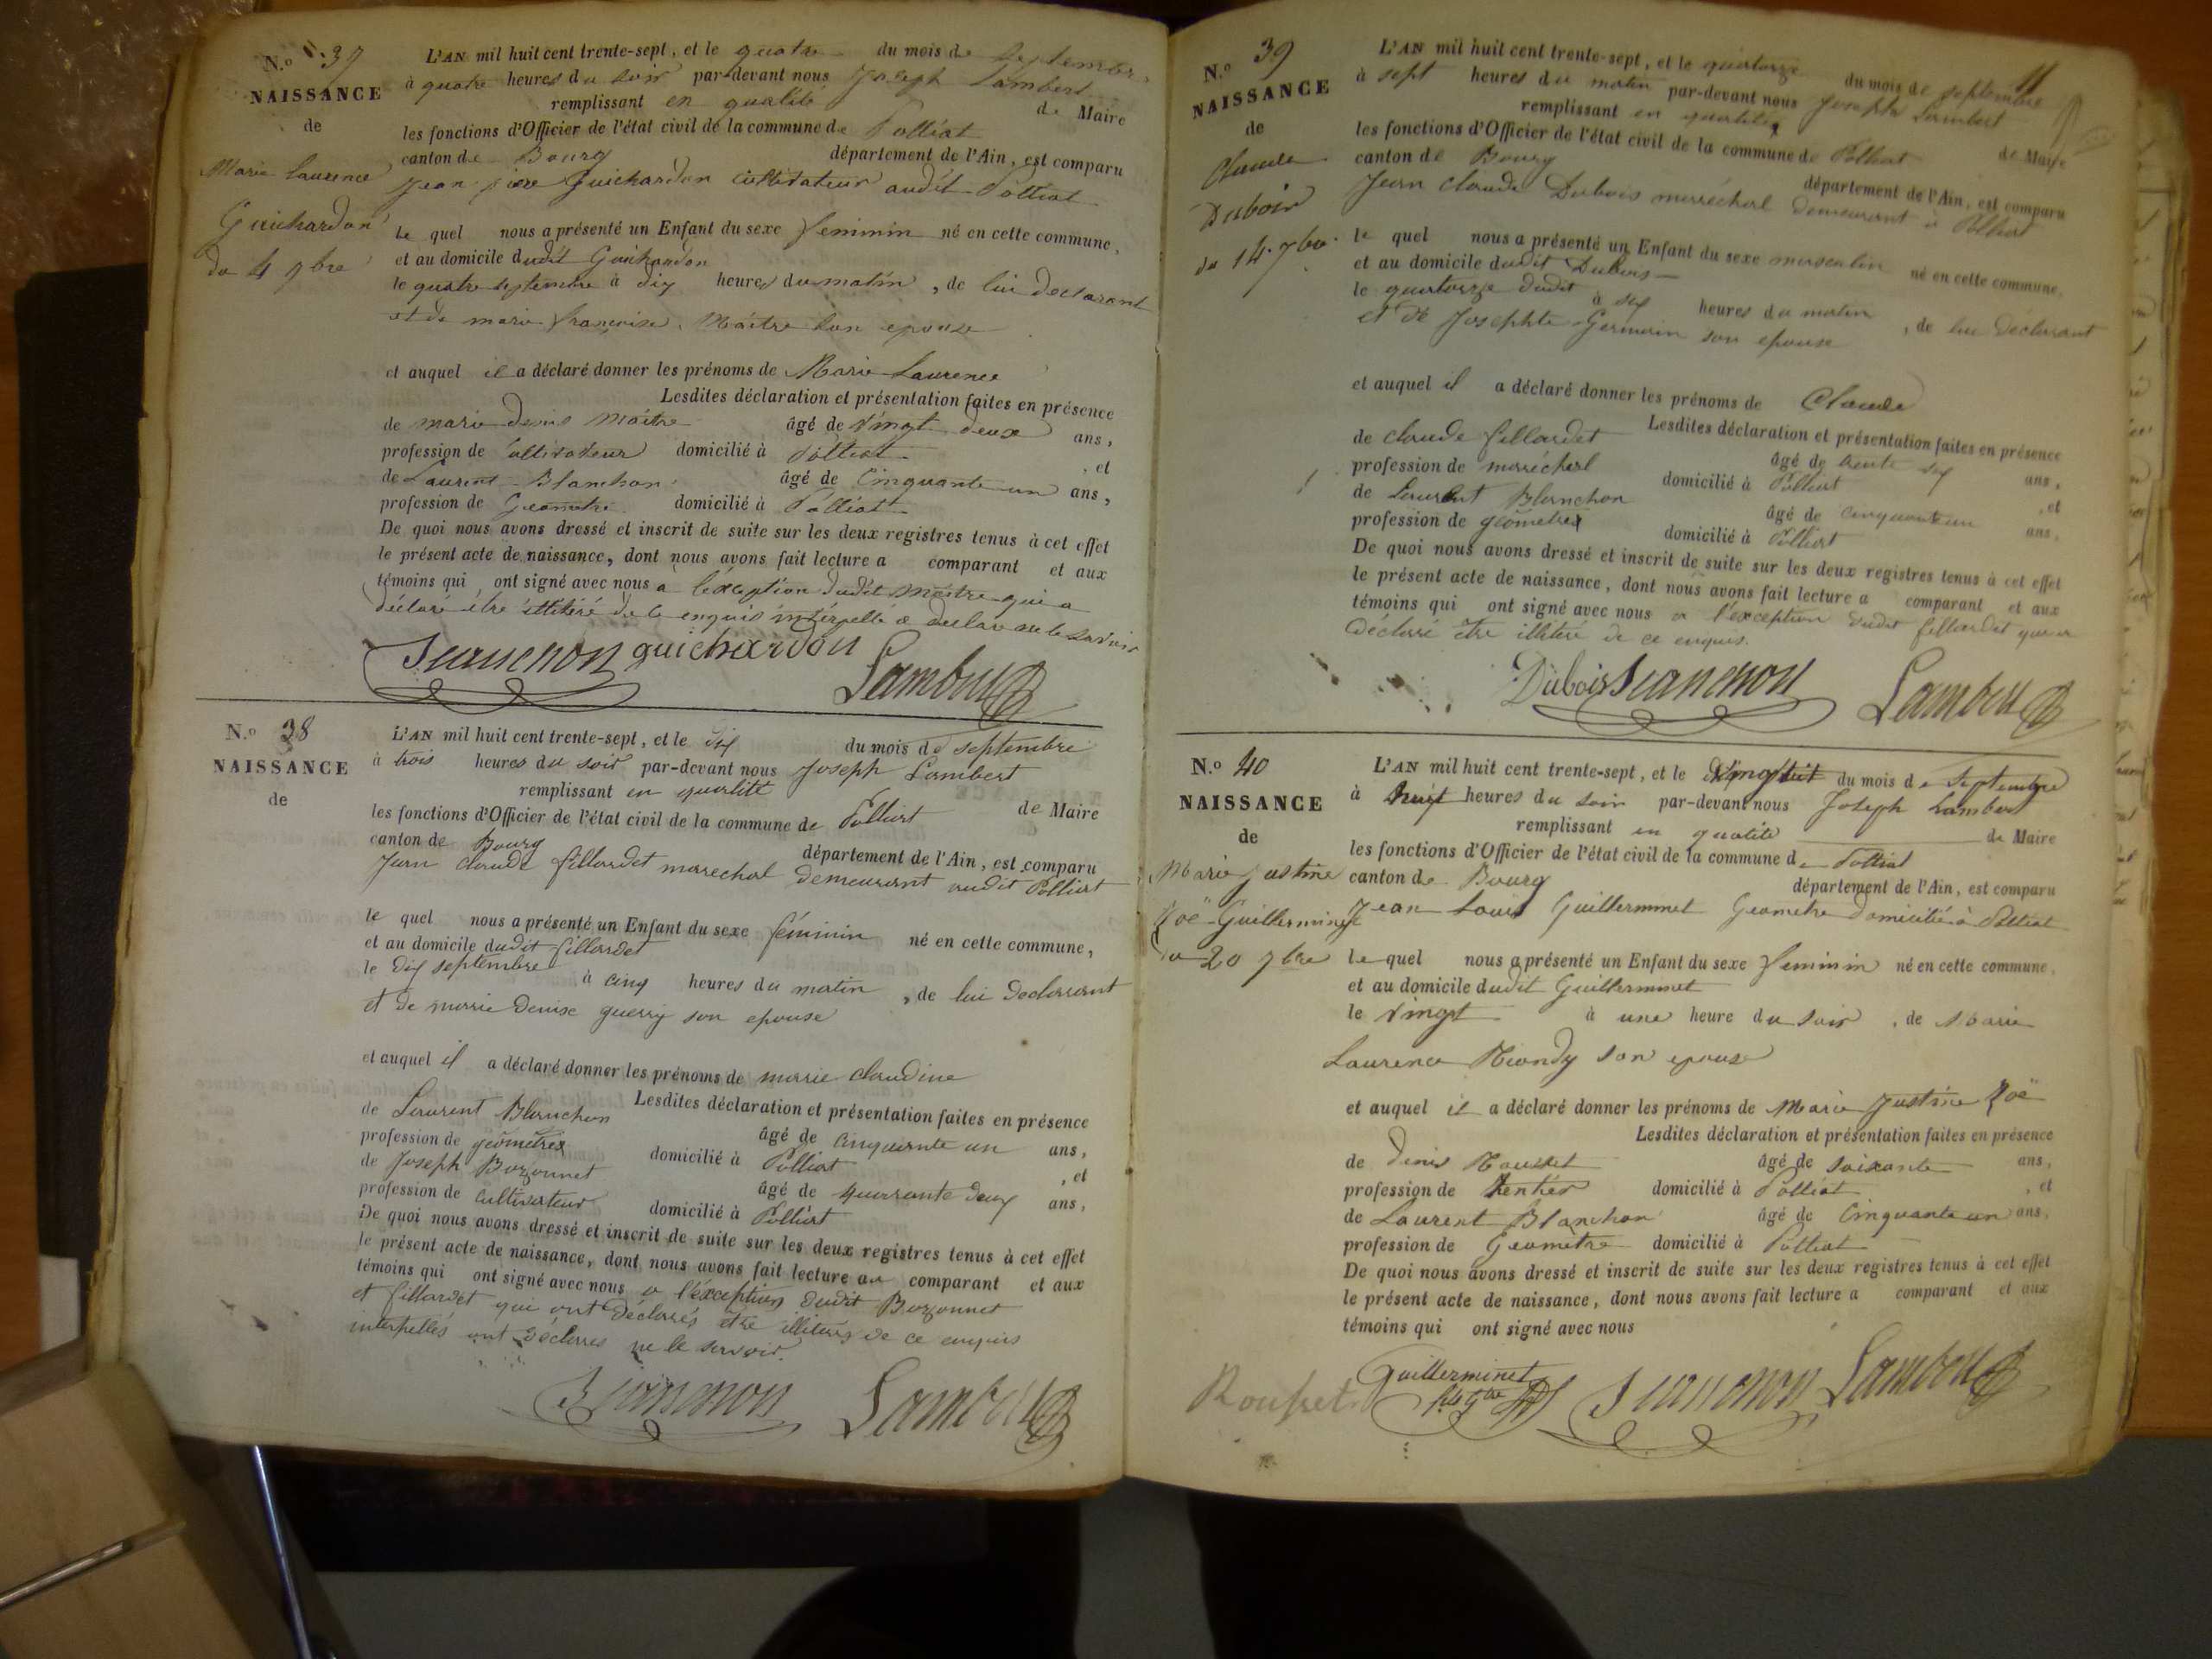 N.o 37
NAISSANCE
de
Marie Laurence
Guichardon
du 4 7bre
L'AN mil huit cent trente-sept, et le quatre du mois de septembre
à quatre heures du soir par-devant nous Joseph Lambert
remplissant en qualité de Maire
les fonctions d'Officier de l'état civil de la commune de Polliat
canton de Bourg département de l'Ain, est comparu
Jean pière Guichardon cultivateur audit Polliat
le quel nous a présenté un Enfant du sexe feminin né en cette commune,
et au domicile dudit Guichardon
le quatre septembre à dix heures du matin, de lui declarant
et de marie françoise Maitre son epouse
et auquel il a déclaré donner les prénoms de Marie Laurence
Lesdites déclaration et présentation faites en présence
de marie denis Maitre âgé de vingt deux ans,
profession de cultivateur domicilié à Polliat , et
de Laurent Blanchon âgé de Cinquante un ans,
profession de Geometre domicilié à Polliat
De quoi nous avons dressé et inscrit de suite sur les deux registres tenus à cet effet
le présent acte de naissance, dont nous avons fait lecture a comparant et aux
témoins qui ont signé avec nous a l'exception dudit Maitre qui a
déclaré être illitéré de ce enquis interpellé a declaré ne le savoir
guichardon Lambert
N.o 38
NAISSANCE
de
L'AN mil huit cent trente-sept, et le dix du mois de septembre
à trois heures du soir par-devant nous Joseph Lambert
remplissant en qualité de Maire
les fonctions d'Officier de l'état civil de la commune de Polliat
canton de Bourg département de l'Ain, est comparu
Jean claude fillardet marechal demeurant audit Polliat
le quel nous a présenté un Enfant du sexe féminin né en cette commune,
et au domicile dudit fillardet
le dix septembre à cinq heures du matin, de lui declarant
et de marie Denise guerry son epouse
et auquel il a déclaré donner les prénoms de marie claudine
Lesdites déclaration et présentation faites en présence
de Laurent Blanchon âgé de cinquante un ans,
profession de géometre domicilié à Polliat , et
de Joseph Bozonnet âgé de quarante deux ans,
profession de cultivateur domicilié à Polliat
De quoi nous avons dressé et inscrit de suite sur les deux registres tenus à cet effet
le présent acte de naissance, dont nous avons fait lecture au comparant et aux
témoins qui ont signé avec nous a l'exception dudit Bozonnet
et fillardet qui ont déclarés être illiterés de ce enquis
interpellés ont déclarés ne le savoir.
Lambert
11
N.o 39
NAISSANCE
de
Claude
Dubois
du 14 7bre
L'AN mil huit cent trente-sept, et le quatorze du mois de septembre
à sept heures du matin par-devant nous Joseph Lambert
remplissant en qualité de Maire
les fonctions d'Officier de l'état civil de la commune de Polliat
canton de Bourg département de l'Ain, est comparu
Jean claude Dubois maréchal demeurant à Polliat
le quel nous a présenté un Enfant du sexe masculin né en cette commune,
et au domicile dudit Dubois
le quatorze dudit à six heures du matin, de lui déclarant
et de Josephte Germain son epouse
et auquel il a déclaré donner les prénoms de Claude
Lesdites déclaration et présentation faites en présence
de claude fillardet âgé de trente six ans,
profession de maréchal domicilié à Polliat , et
de Laurent Blanchon âgé de cinquante un ans,
profession de géometre domicilié à Polliat
De quoi nous avons dressé et inscrit de suite sur les deux registres tenus à cet effet
le présent acte de naissance, dont nous avons fait lecture a comparant et aux
témoins qui ont signé avec nous a l'exception dudit fillardet qui a
déclaré être illitéré de ce enquis.
Dubois Lambert
N.o 40
NAISSANCE
de
Marie Justine
Zoë Guillerminet
du 20 7bre
L'AN mil huit cent trente-sept, et le du mois de Septembre
à heures du soir par-devant nous Joseph Lambert
remplissant en qualité de Maire
les fonctions d'Officier de l'état civil de la commune de Polliat
canton de Bourg département de l'Ain, est comparu
Jean Louis Guillerminet Geometre domicilié à Polliat
le quel nous a présenté un Enfant du sexe feminin né en cette commune,
et au domicile dudit Guillerminet
le vingt à une heure du soir, de Marie
Laurence son epouse
et auquel il a déclaré donner les prénoms de Marie Justine Zoë
Lesdites déclaration et présentation faites en présence
de Denis Rousset âgé de soixante ans,
profession de Rentier domicilié à Polliat , et
de Laurent Blanchon âgé de Cinquante un ans,
profession de Geomètre domicilié à Polliat
De quoi nous avons dressé et inscrit de suite sur les deux registres tenus à cet effet
le présent acte de naissance, dont nous avons fait lecture a comparant et aux
témoins qui ont signé avec nous
Rousset Guillerminet Lambert